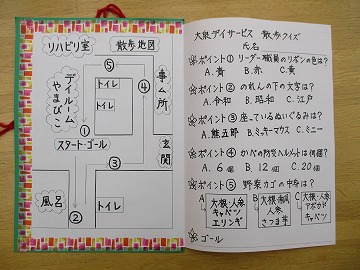 リハビリ室
散歩地図
⑤
トイレ
④
事ム所
デイルーム
やまびこ
トイレ
①
玄関
スタート・ゴール
③
風呂
トイレ
②
大泉デイサービス 散歩クイズ
氏名
ポイント① リーダー職員のリボンの色は?
A.青 B.赤 C.黄
ポイント② のれんの下の文字は?
A.令和 B.昭和 C.江戸
ポイント③ 座っているぬいぐるみは?
A.熊五郎 B.ミッキーマウス C.ミニー
ポイント④ かべの防災ヘルメットは何個?
A.6個 B.12個 C.20個
ポイント⑤ 野菜カゴの中身は?
A 大根・人参 キャベツ エリンギ
B 大根・南瓜 人参 さつま芋
C 大根・人参 アボカド キャベツ
ゴール